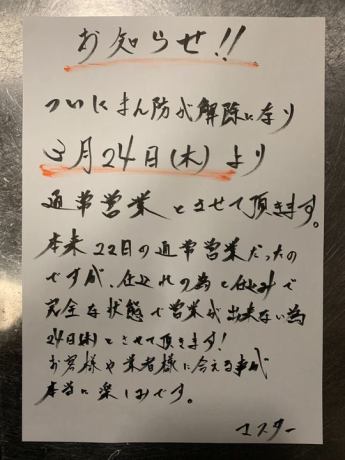 お知らせ!!
ついにまん防が解除になり
3月24日(木)より
通常営業とさせて頂きます。
本来22日の通常営業だったの
ですが、仕込れの為と仕込みで
完全な状態で営業が出来ない為
24日(木)とさせて頂きます!
お客様や業者様に会える事が
本当に楽しみです。
マスター